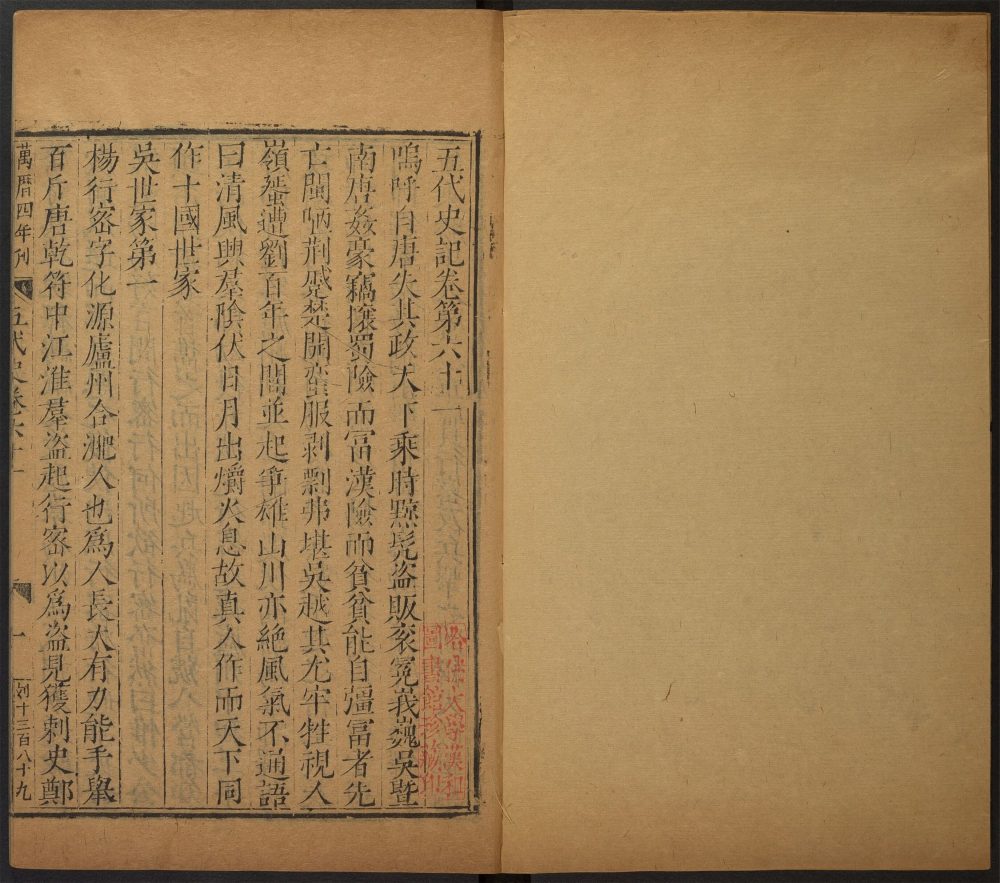 五代史記卷第六十一
嗚呼自唐失其政天下乗時黥髠盗販衮冕峩巍吳暨
南唐姦豪竊攘蜀險而冨漢險而貧貧能自彊冨者先
亡閩陋荆蹙楚開蠻服剥剽弗堪吳越其尤牢牲視人
嶺蜑遭劉百年之間並起爭雄山川亦絶風氣不通語
曰清風興羣隂伏日月出爝火息故真人作而天下同
作十國世家
吳世家第一
楊行密字化源廬州合淝人也為人長大有力能手舉
百斤唐乾符中江淮羣盗起行密以為盗見獲刺史鄭
萬曆四年刋
五代史卷六十一
一
列十三百八十九
哈佛大學漢和
圖書館珍藏印